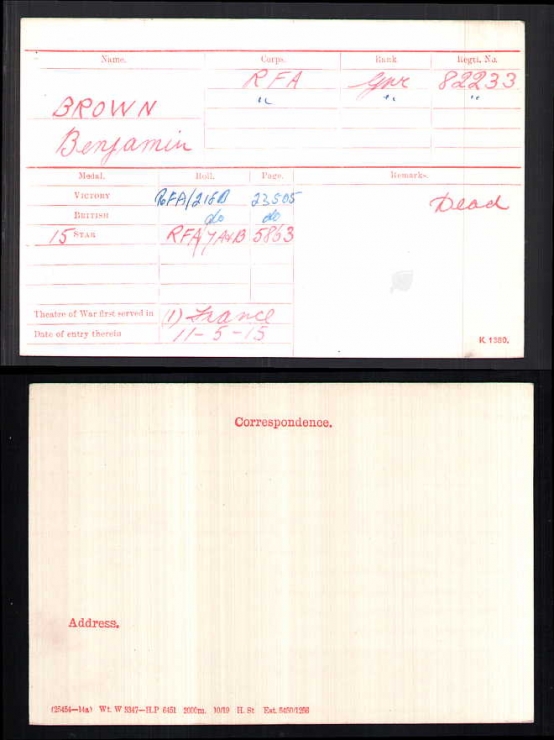 Name. Corps. Rank Regtl. No.
RFA Gnr 82233
BROWN " " "
Benjamin
Medal. Roll. Page. Remarks.
VICTORY RFA/216B 23505 Dead
BRITISH do do
15 STAR RFA/7A&B 5853
Theatre of War first served in (1) France
Date of entry therein 11-5-15
K. 1380.
Correspondence.
Address.
(25454—14a) Wt. W 5347—H.P 6451 2000m. 10/19 H. St Est.